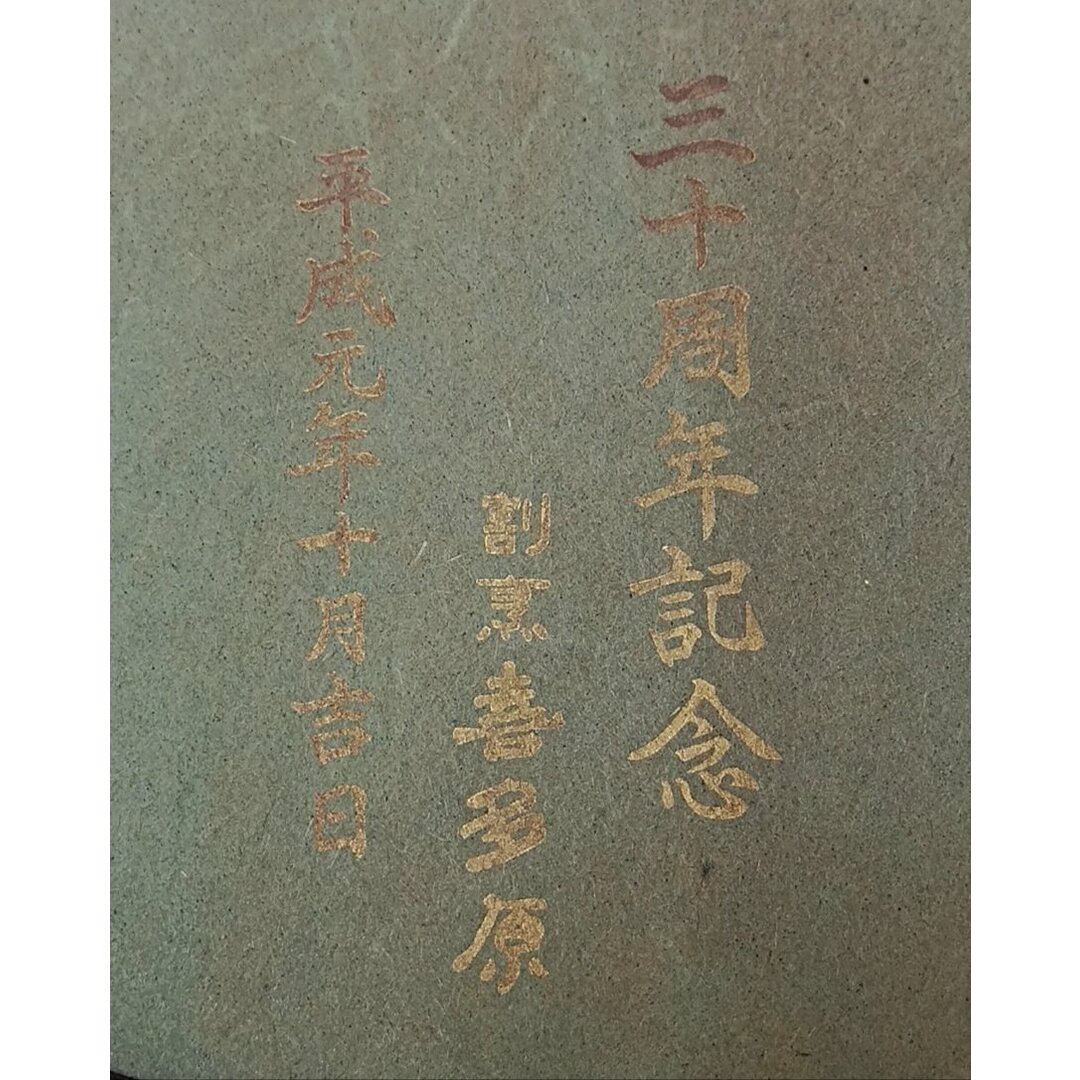 三十周年記念
割烹喜多原
平成元年十月吉日